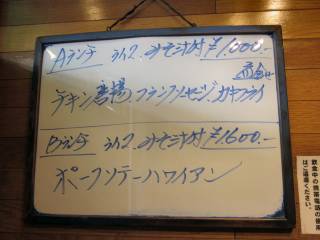 Aランチ ライス、みそ汁付 ¥1,000.-
チキン唐揚 フランクソーセージ カキフライ
Bランチ ライス、みそ汁付 ¥1,600.-
ポークソテーハワイアン
飲食中の携帯電話の使用
はご遠慮ください。